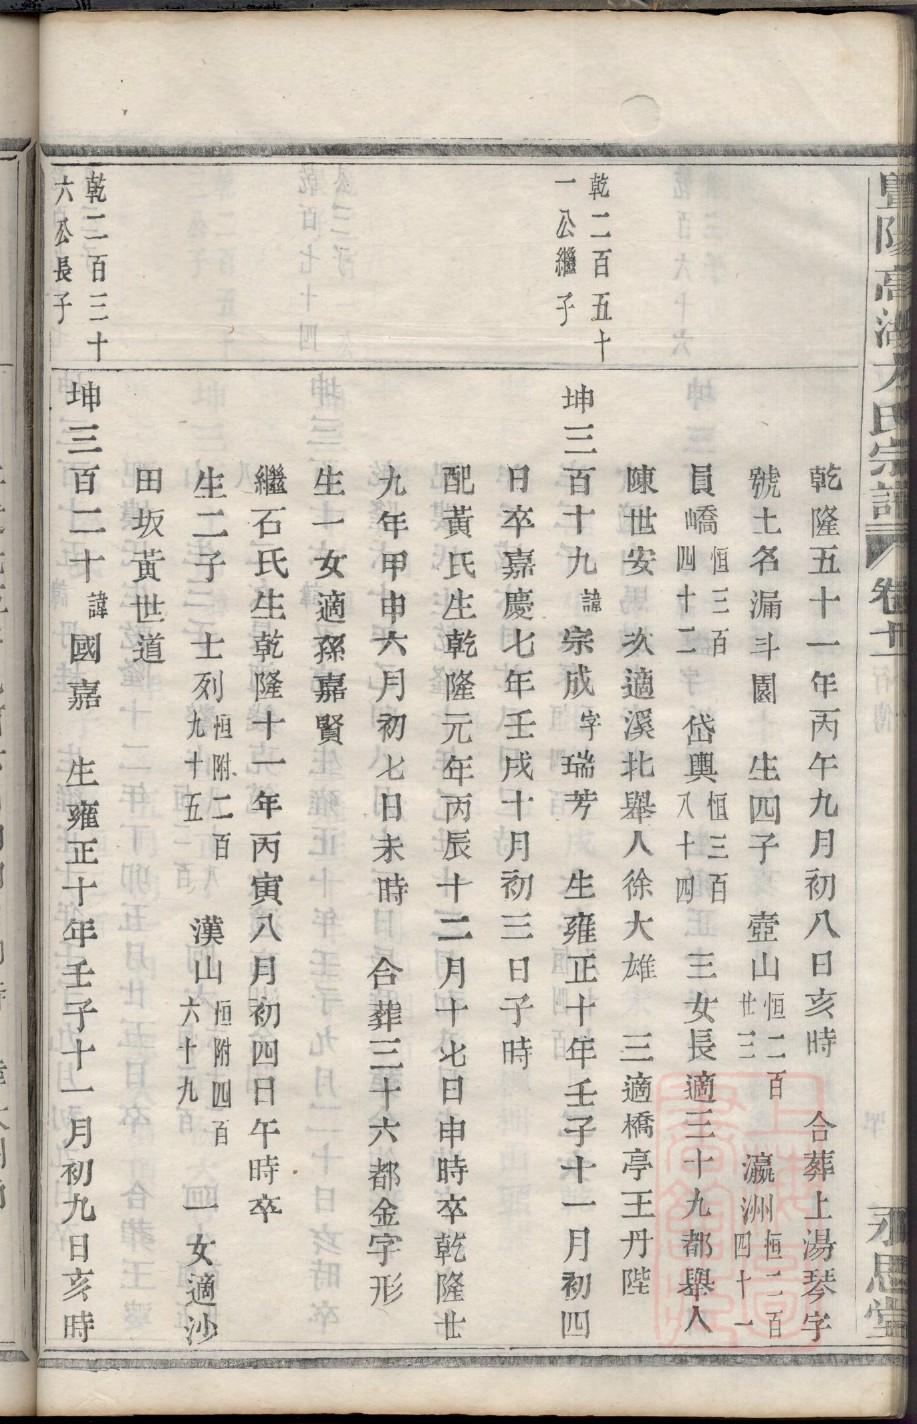 暨陽高湖方氏宗譜 卷十一 永思堂
乾隆五十一年丙午九月初八日亥時 合葬上湯琴字
號土名漏斗園 生四子 壺山恒二百廿三 瀛洲恒二百四十一
員嶠恒三百四十二 岱輿恒三百八十四 三女長適三十九都舉人
陳世安 次適溪北舉人徐大雄 三適橋亭王丹陛
乾二百五十一公繼子
坤三百十九諱宗成字瑞芳 生雍正十年壬子十一月初四
日卒嘉慶七年壬戌十月初三日子時
配黃氏生乾隆元年丙辰十二月十七日申時卒乾隆廿
九年甲申六月初七日未時 合葬三十六都金字形
生一女適孫嘉賢
繼石氏生乾隆十一年丙寅八月初四日午時卒
生二子 士列恒附二百九十五 漢山恒附四百六十九 一女適沙
田坂黃世道
乾二百三十六公長子
坤三百二十諱國嘉 生雍正十年壬子十一月初九日亥時